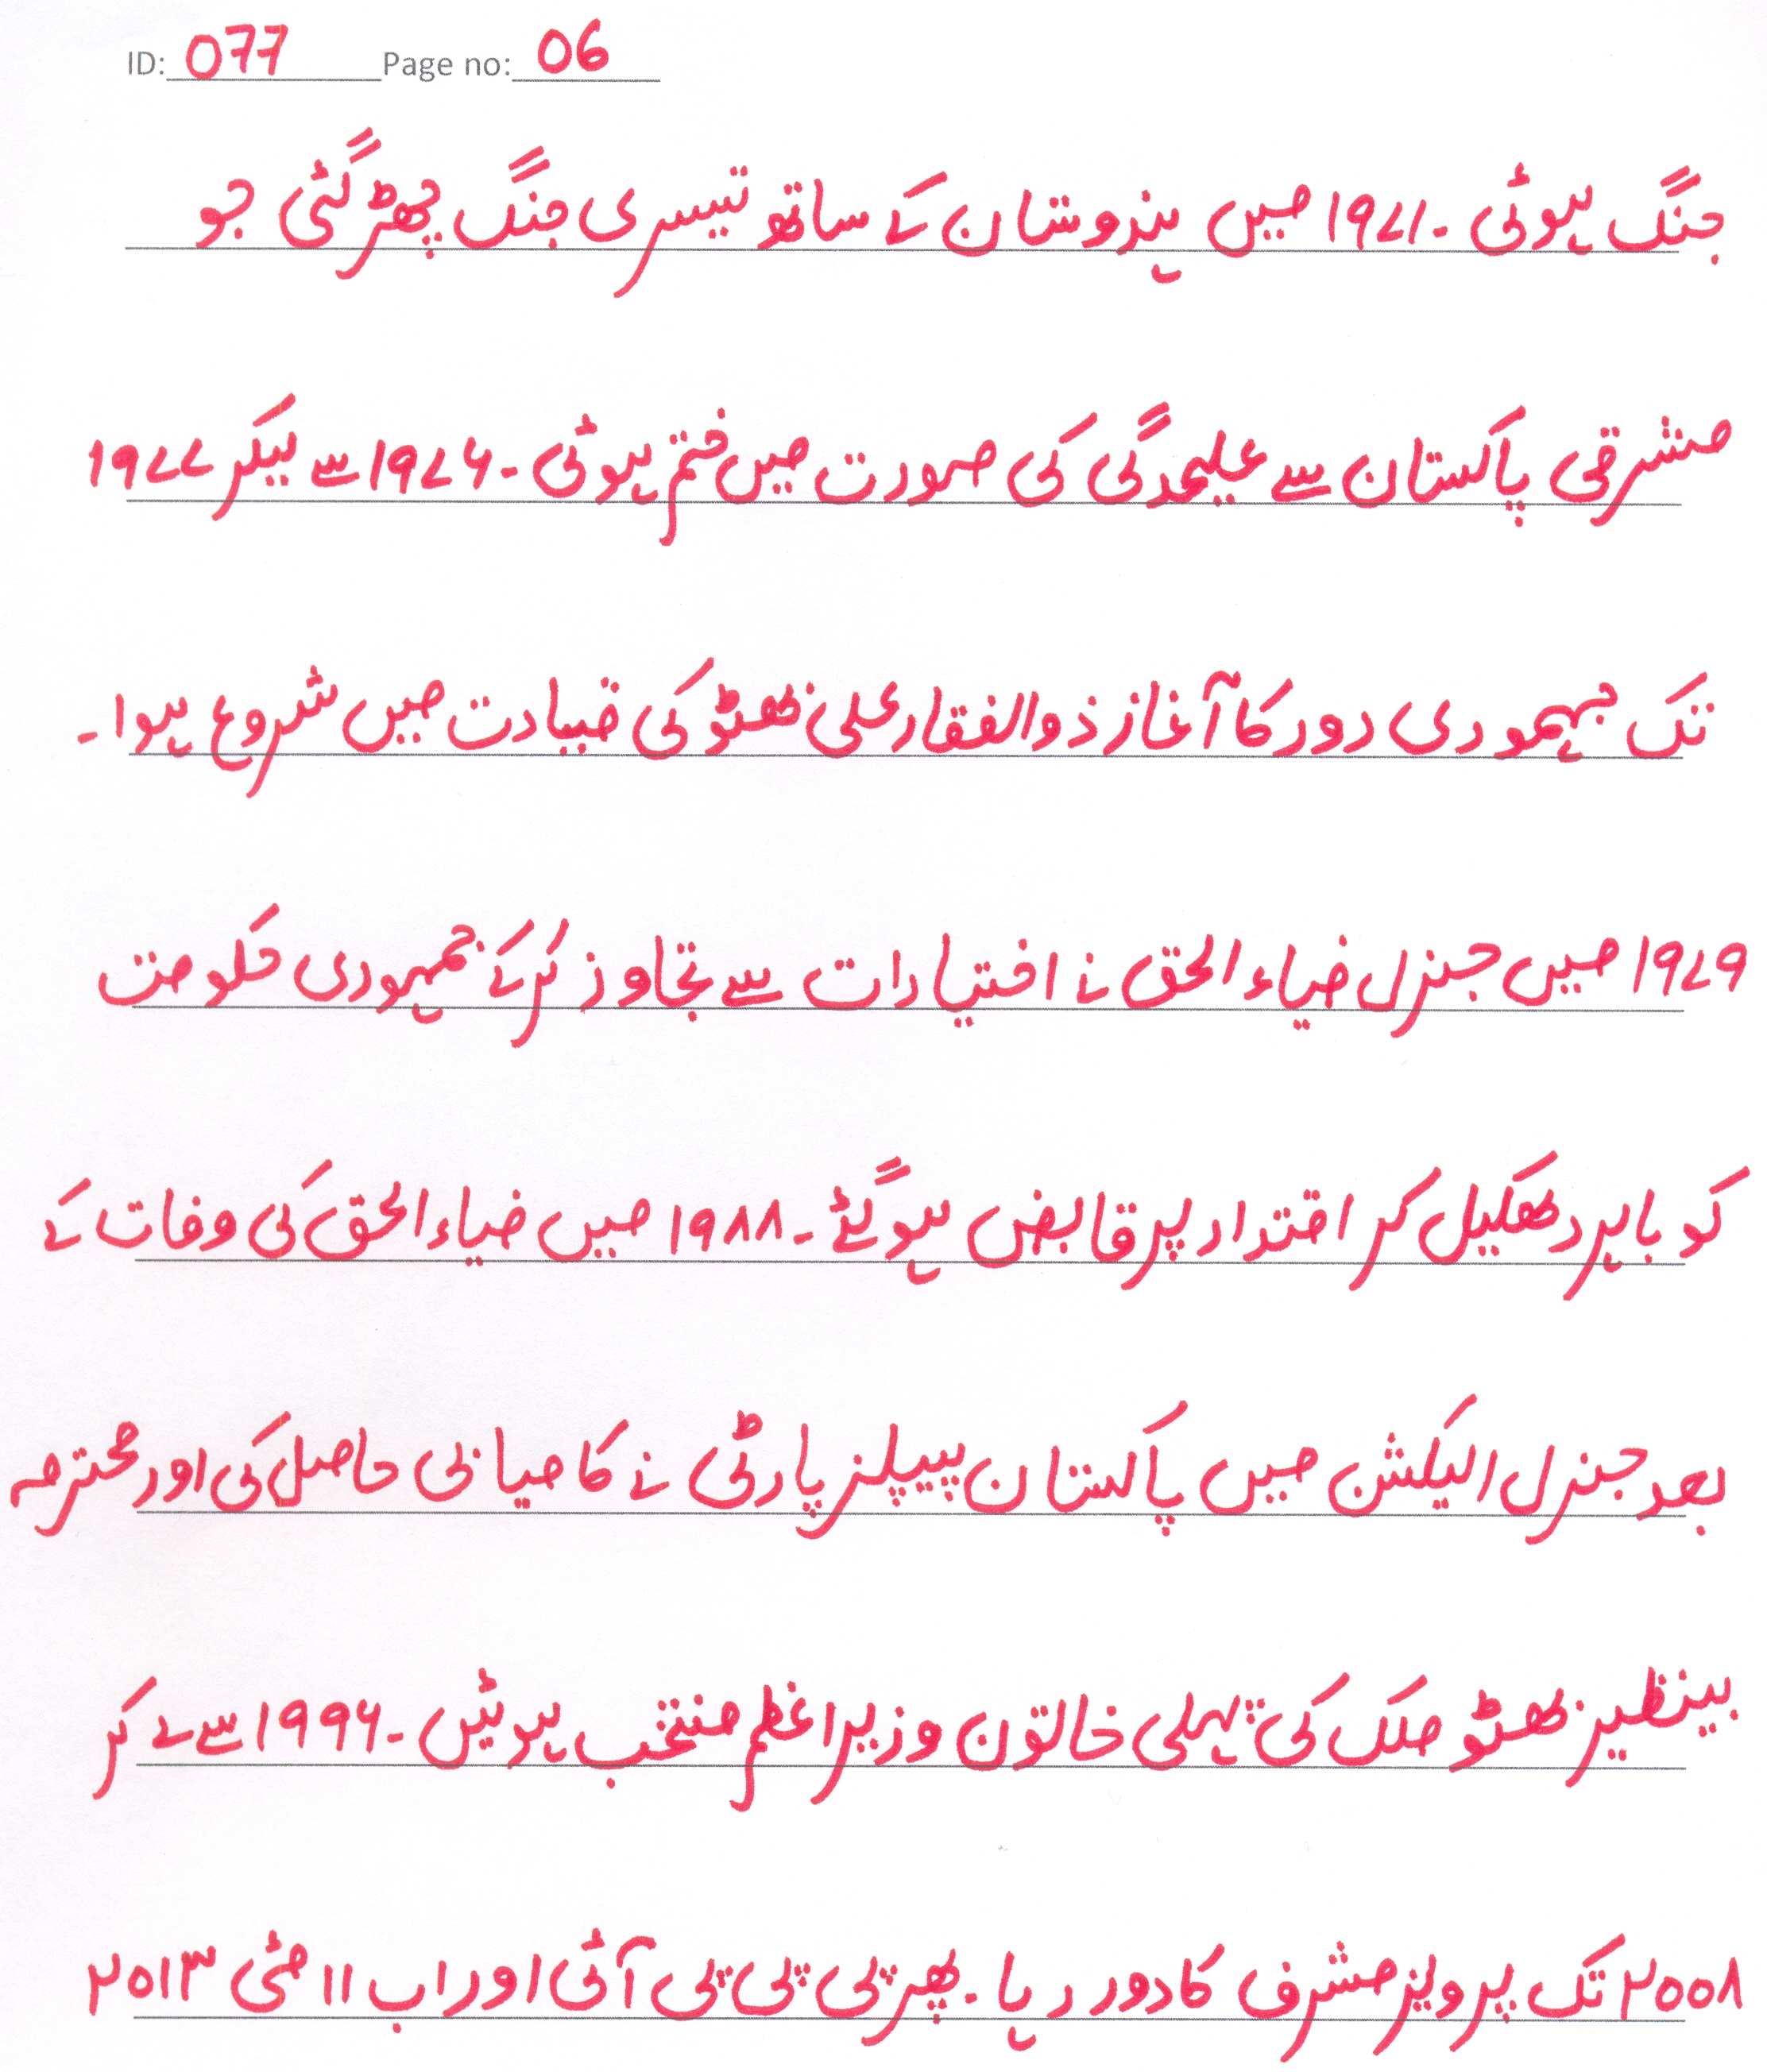 ID: 077 Page no: 06
جنگ ہوئی۔ ۱۹۷۱ میں ہندوستان کے ساتھ تیسری جنگ چھڑ گئی جو
مشرقی پاکستان سے علیحدگی کی صورت میں ختم ہوئی۔ ۱۹۷۶ سے لیکر ۱۹۷۷
تک جمہوری دور کا آغاز ذوالفقار علی بھٹو کی قیادت میں شروع ہوا۔
۱۹۷۹ میں جنرل ضیاء الحق نے اختیارات سے تجاوز کر کے جمہوری حکومت
کو باہر دھکیل کر اقتدار پر قابض ہو گئے۔ ۱۹۸۸ میں ضیاء الحق کی وفات کے
بعد جنرل الیکشن میں پاکستان پیپلز پارٹی نے کامیابی حاصل کی اور محترمہ
بینظیر بھٹو ملک کی پہلی خاتون وزیراعظم منتخب ہوئیں۔ ۱۹۹۶ سے لے کر
۲۰۰۸ تک پرویز مشرف کا دور رہا۔ پھر پی پی پی آئی اور اب ۱۱ مئی ۲۰۱۳